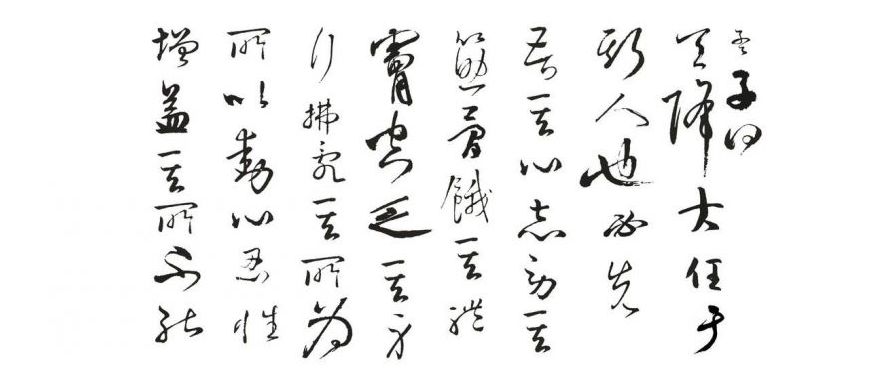 孟子曰
天降大任于
斯人也必先
苦其心志勞其
筋骨餓其體
膚空乏其身
行拂亂其所為
所以動心忍性
增益其所不能